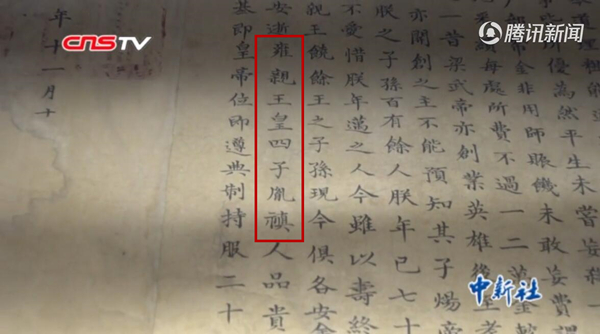 CNSTV
腾讯新闻
所優為然平生未嘗妄殺一
部帑金非用師賑饑未敢妄費謂
每處所費不過一二萬金較
一昔梁武帝亦創業英雄後至耄
亦開創之主不能預知其子煬帝
朕之子孫百有餘人朕年已七十
不愛惜朕年邁之人今雖以壽終
親王饒餘王之子孫現今俱各安全
安逝雍親王皇四子胤禛人品貴
基即皇帝位即遵典制持服二十
年十一月十
中新社